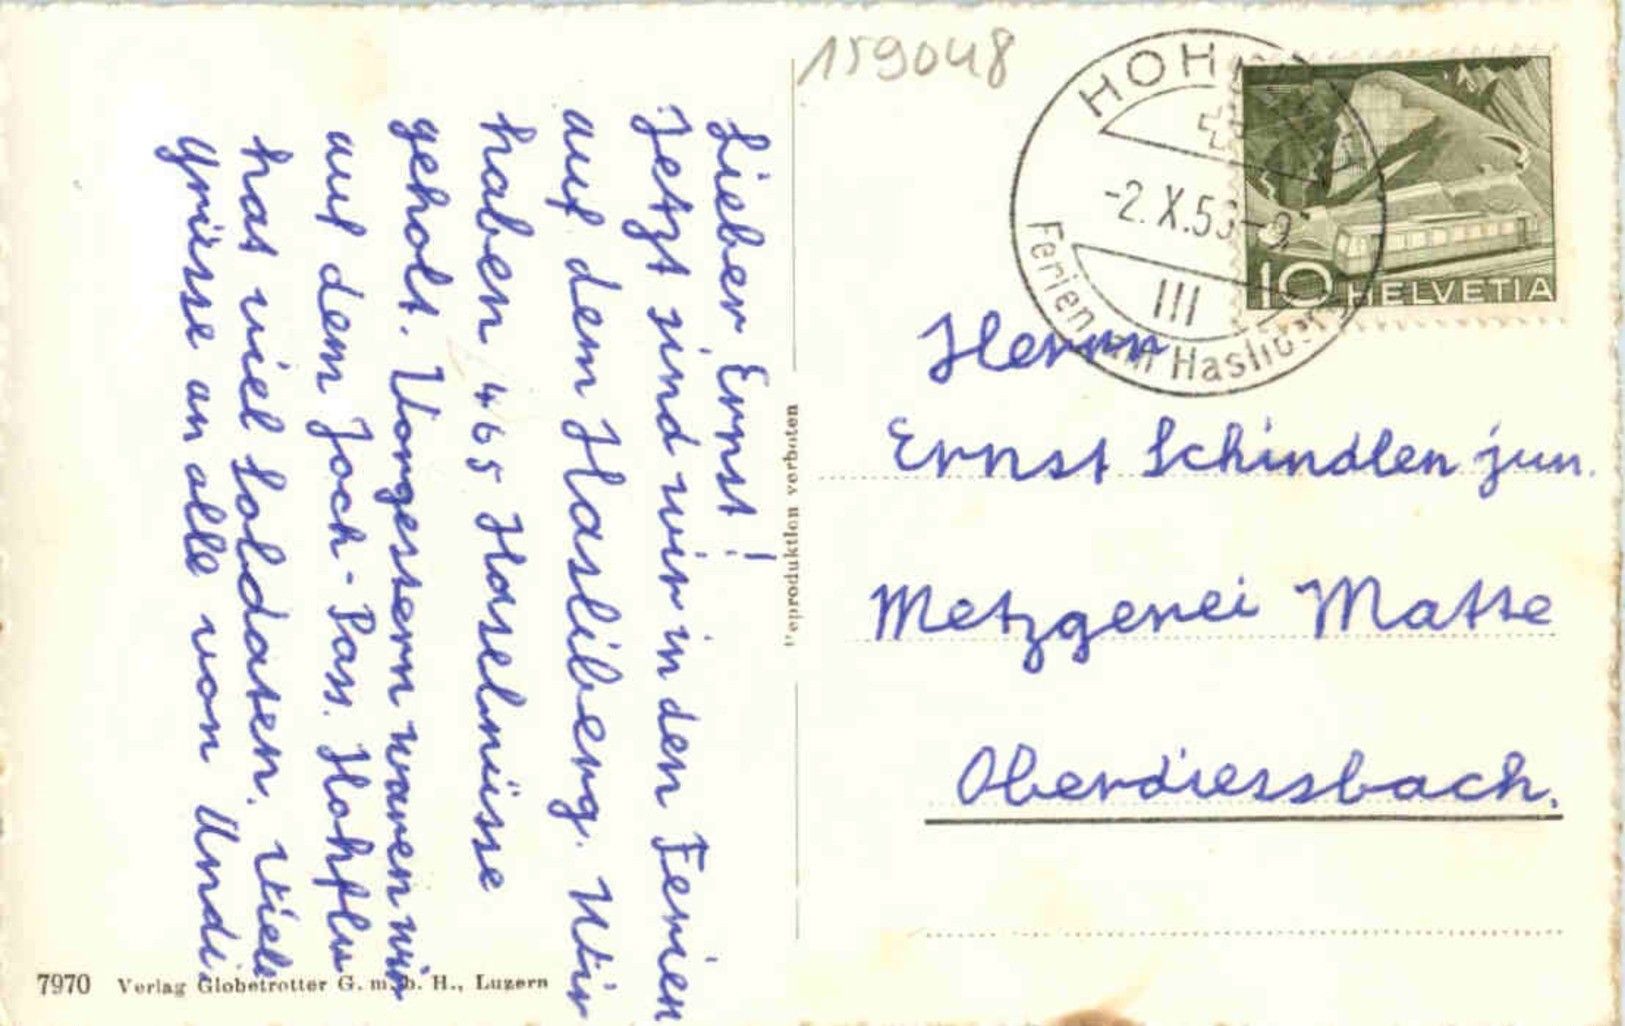 Lieber Ernst!
Jetzt sind wir in den Ferien
auf dem Hasliberg. Wir
haben 465 Haselnüsse
geholt. Vorgestern waren wir
auf dem Joch-Pass. Hohflu
has viel Soldaten. Viele
Grüsse an alle von Undi
7970 Verlag Globetrotter G. m. b. H., Luzern
Reproduktion verboten
159048
HOHF
-2. X. 5 -9
III
Ferien am Hasliberg
10 HELVETIA
Herrn
Ernst Schindler jun.
Metzgerei Matte
Oberdiessbach.